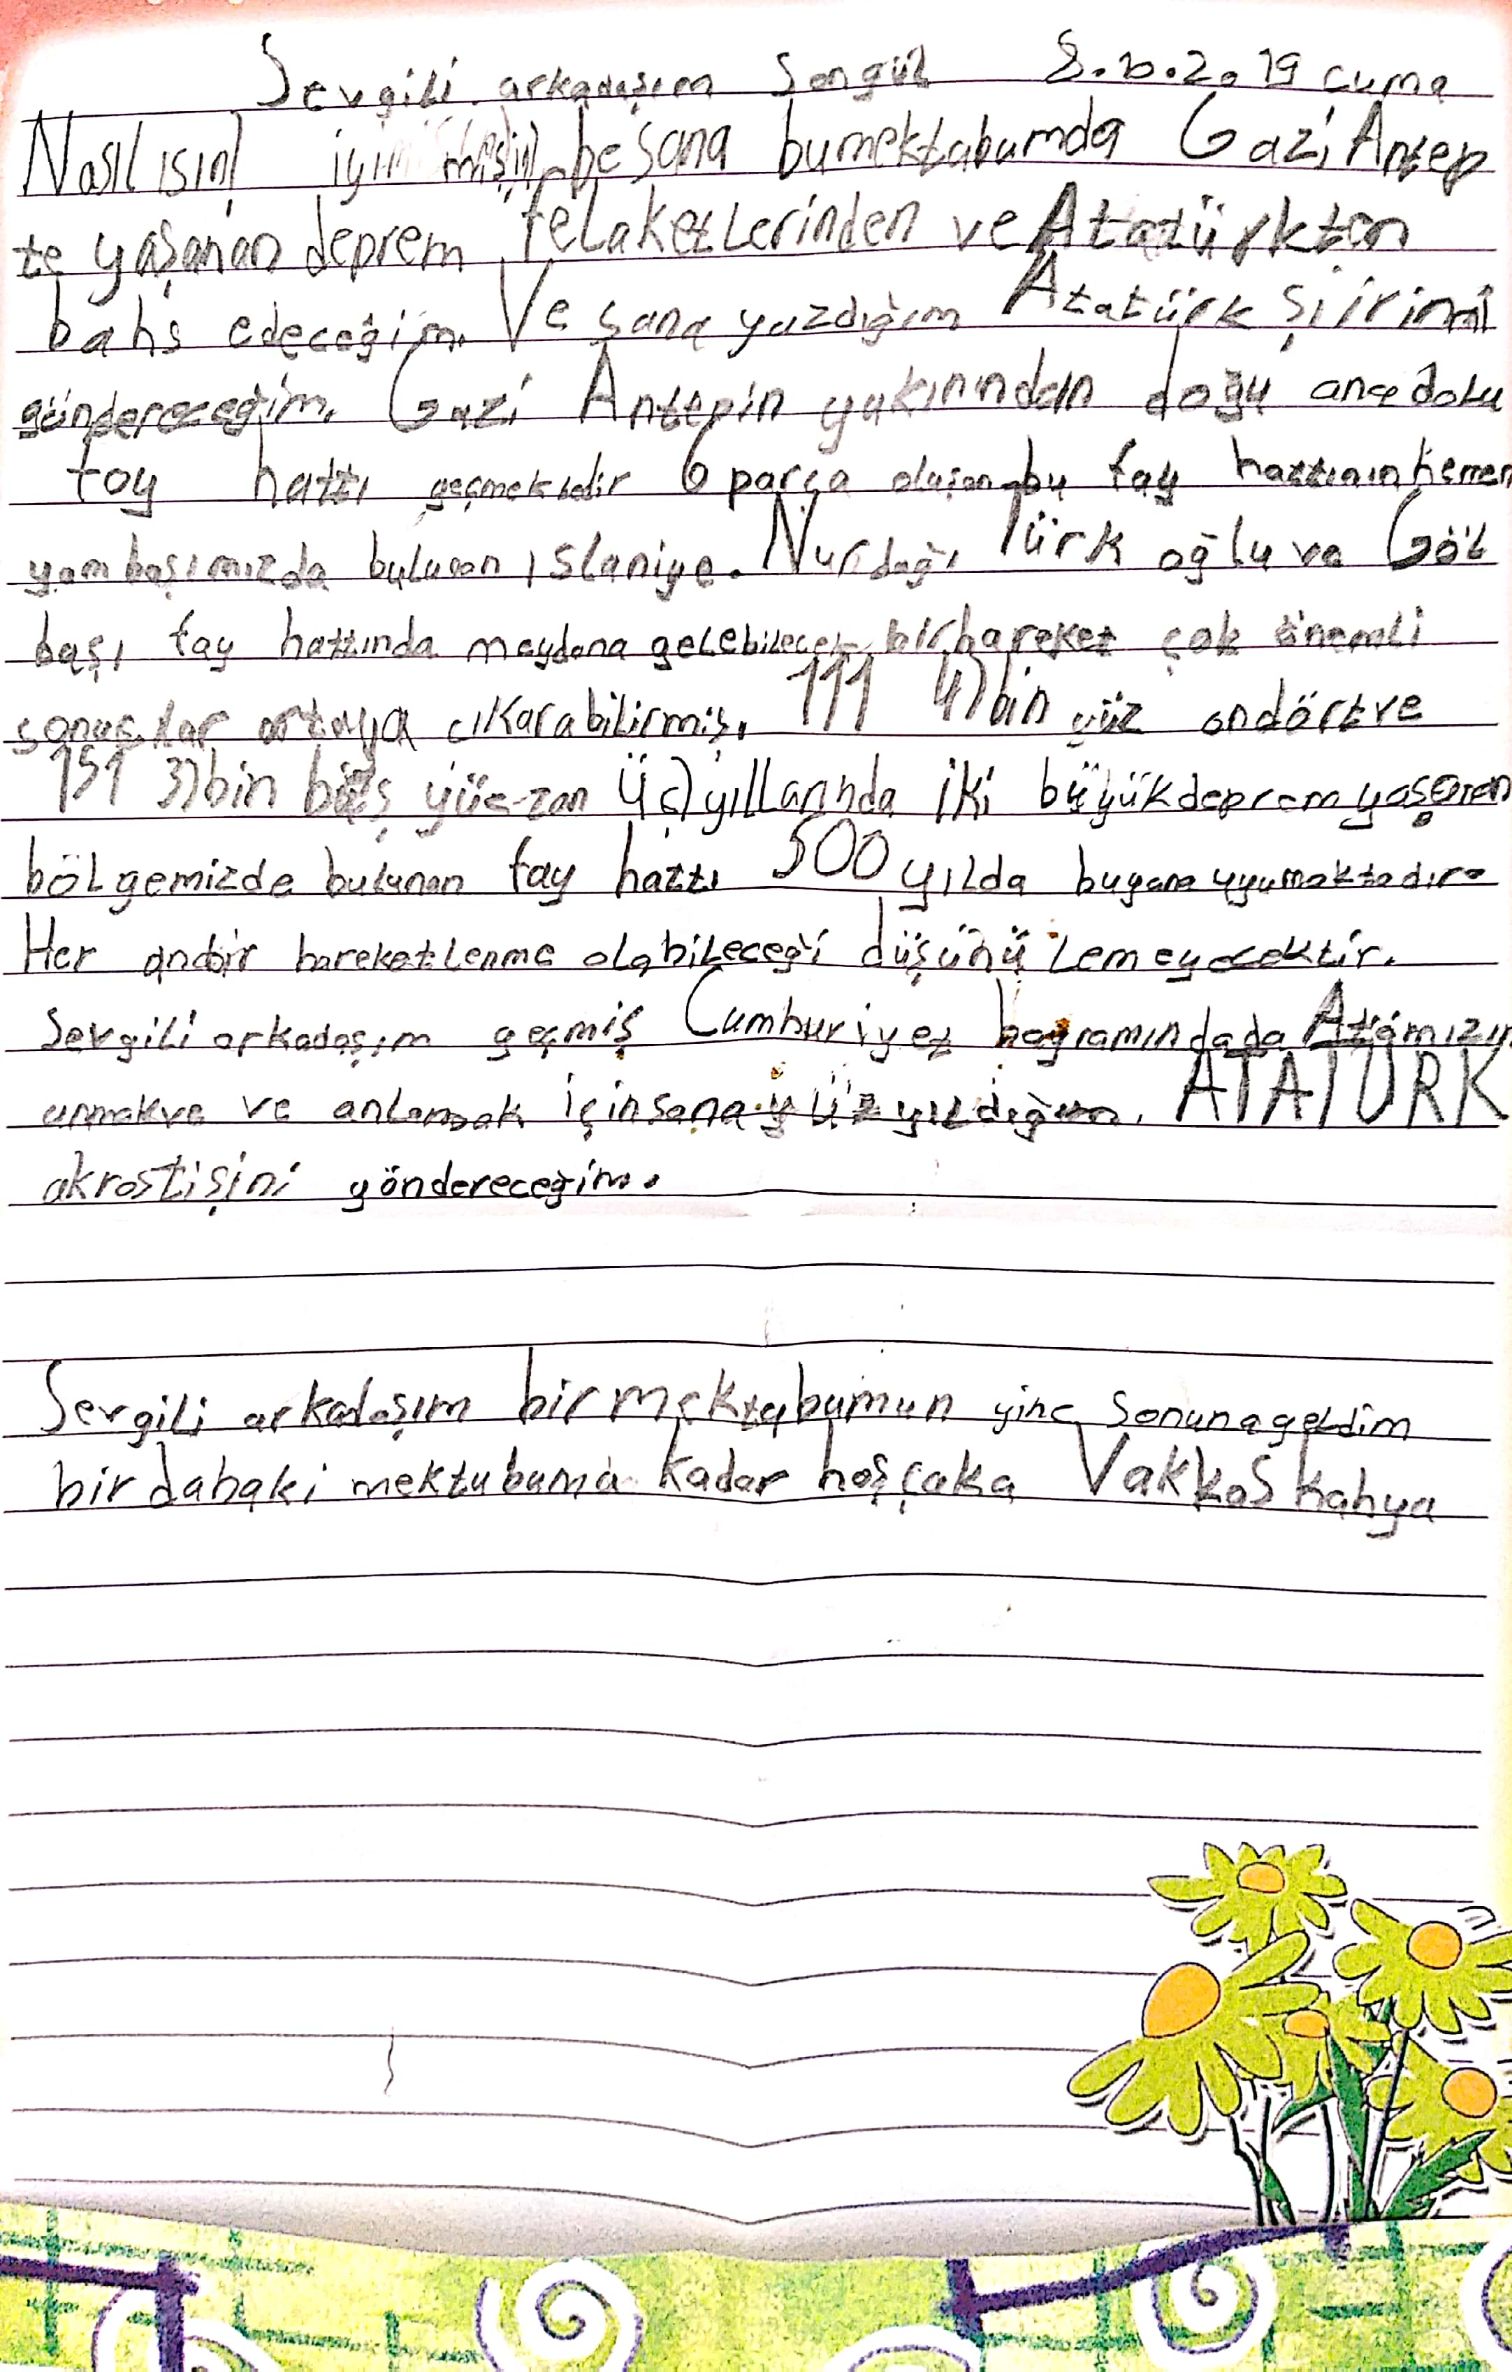 Sevgili arkadaşım Songül 8.b.2019 cuma
Nasılısın iyimisin be sana bumektabumda Gazi Antep
te yaşanan deprem felaketlerinden ve Atatürkten
bahs edeceğim. Ve sana yazdığım Atatürk şiirimi
göndereceğim. Gazi Antepin yakınından doğu anadolu
fay hattı geçmektedir 6 parça oluşan bu fay hattının hemen
yambaşımızda bulunan ıslaniye. Nurdağı Türk oğlu ve Göl
başı fay hattında meydana gelebilecek bir hareket çok önemli
sonuçlar ortaya çıkarabilirmiş. 111 4)bin yüz ondört ve
151 3)bin beş yüz on üç) yıllarında iki büyük deprem yaşanan
bölgemizde bulunan fay hattı 500 yılda buyana uyumaktadır.
Her andır hareketlenme olabileceği düşünülemeyecektir.
Sevgili arkadaşım geçmiş Cumhuriyet bayramındada Atamızın
anmakve ve anlamak için sana yazdığım. ATATÜRK
akrostişini göndereceğim.
Sevgili arkadaşım bir mektubumun yine sonuna geldim
bir dahaki mektubuma kadar hoşçaka Vakkas kahya